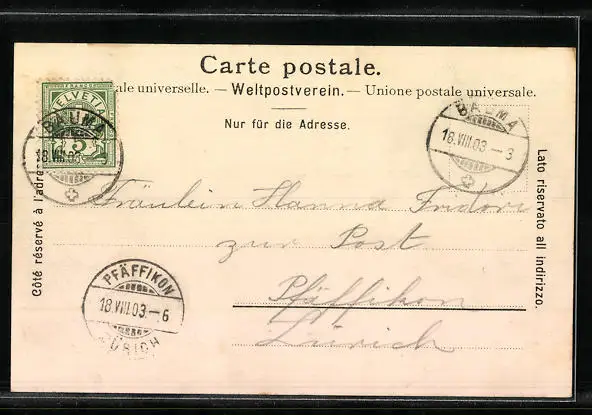 Carte postale.
ale universelle. — Weltpostverein. — Unione postale universale.
Nur für die Adresse.
FRANCO
HELVETIA
5
BAUMA
18.VIII.03
BAUMA
18.VIII.03–3
Côté réservé à l'adres
Lato riservato all indirizzo.
Fräulein Hanna Fridori
zur Post
Pfäffikon
Zürich
PFÄFFIKON
18.VIII.03–6
ZÜRICH